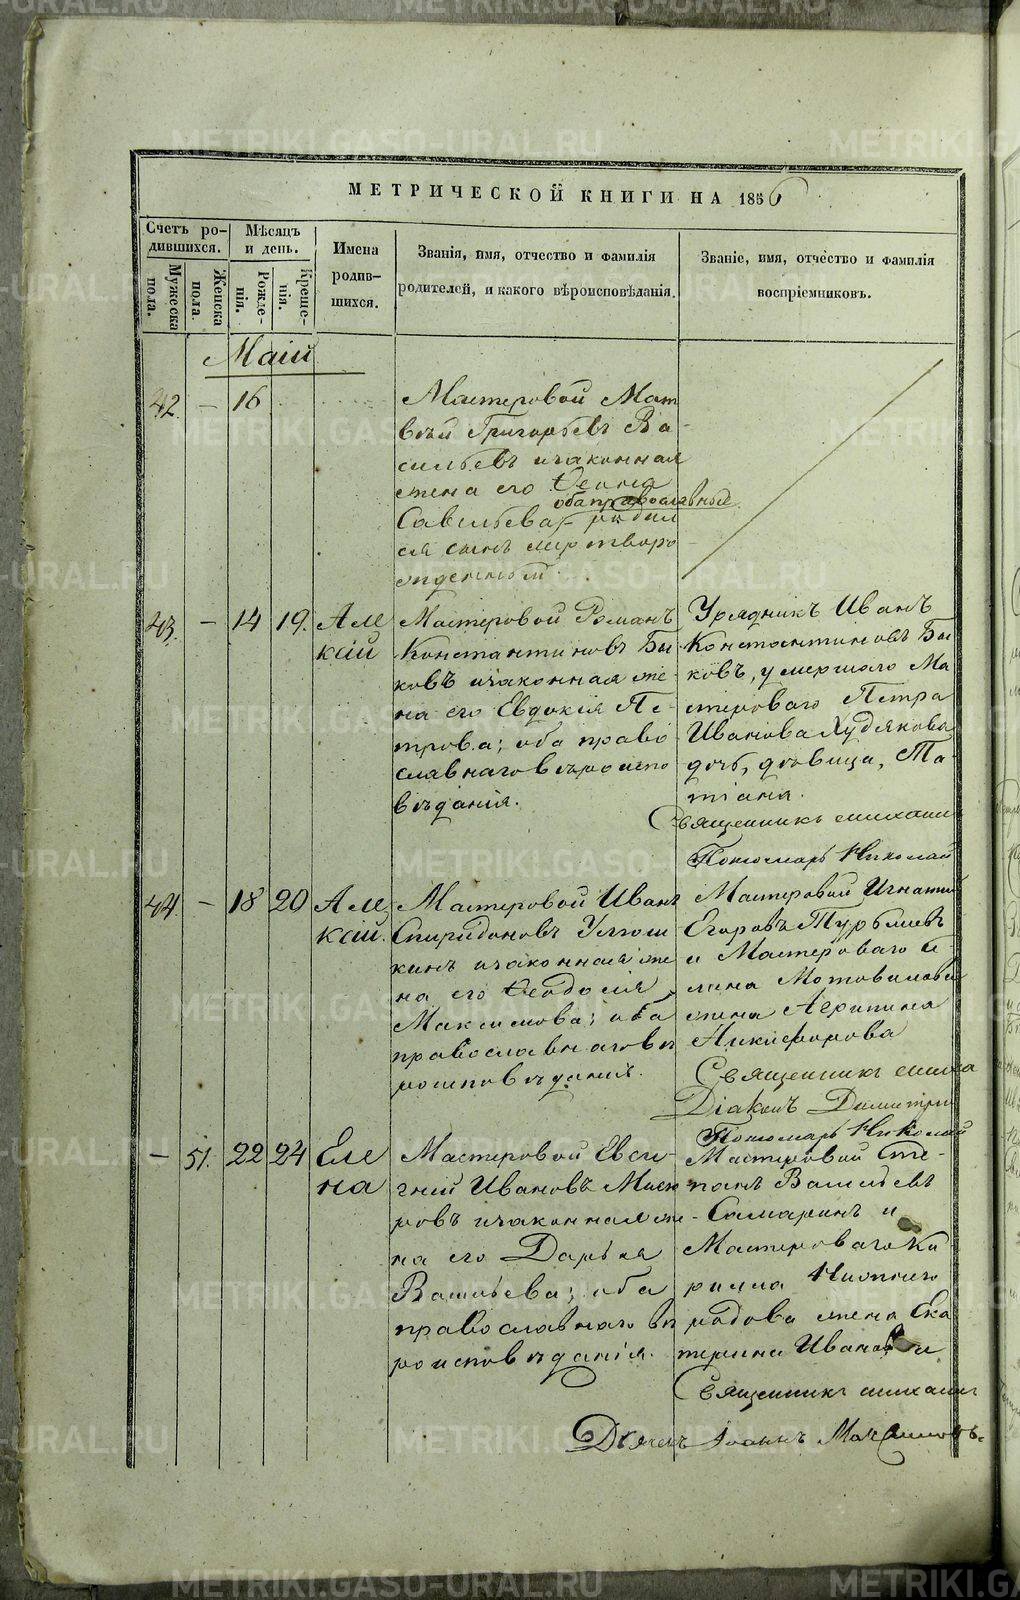 МЕТРИЧЕСКОЙ КНИГИ НА 1856
Счетъ ро-
дившихся.
Мужеска
пола.
Женска
пола.
Мѣсяцъ
и день.
Рожде-
нія.
Креще-
нія.
Имена
родив-
шихся.
Званія, имя, отчество и фамилія
родителей, и какого вѣроисповѣданія.
Званіе, имя, отчество и фамилія
воспріемниковъ.
Маій
42. — 16
Мастеровой Мат
вѣй Григорьевъ Ва-
сильевъ и законная
жена его Ѳекла
оба православные
Савельева, родил
ся сынъ мертворо
жденный.
43. — 14 19. Але
ксій
Мастеровой Романъ
Константиновъ Бы
ковъ и законная же-
на его Евдокія Пе-
трова; оба право
славнаго вѣроиспо
вѣданія.
Урядникъ Иванъ
Константиновъ Бы
ковъ, умершаго Ма
стероваго Петра
Иванова Худякова
дочь, дѣвица, Та-
тіана.
Священникъ Михаилъ
Пономарь Николай
44. — 18 20 Але
ксій.
Мастеровой Иванъ
Спиридоновъ
кинъ и законная же
на его Ѳеодосія
Максимова; оба
православнаго вѣ
роисповѣданія.
Мастеровой Игнатій
Егоровъ
и Мастероваго
Мотовилова
жена Агрипина
Никифорова
Священникъ Миха
Діаконъ Димитрій
Пономарь Николай
— 51. 22 24 Еле
на
Мастеровой Евге-
ній Ивановъ
ровъ и законная же-
на его Дарья
Васильева; оба
православнаго вѣ
роисповѣданія.
Мастеровой Сте-
панъ Васильевъ
Самаринъ и
Мастероваго Ки
рилла Нижего
родова жена Ека
терина Иванова
Священникъ Михаилъ
Дьячекъ Іоаннъ
METRIKI.GASO-URAL.RU